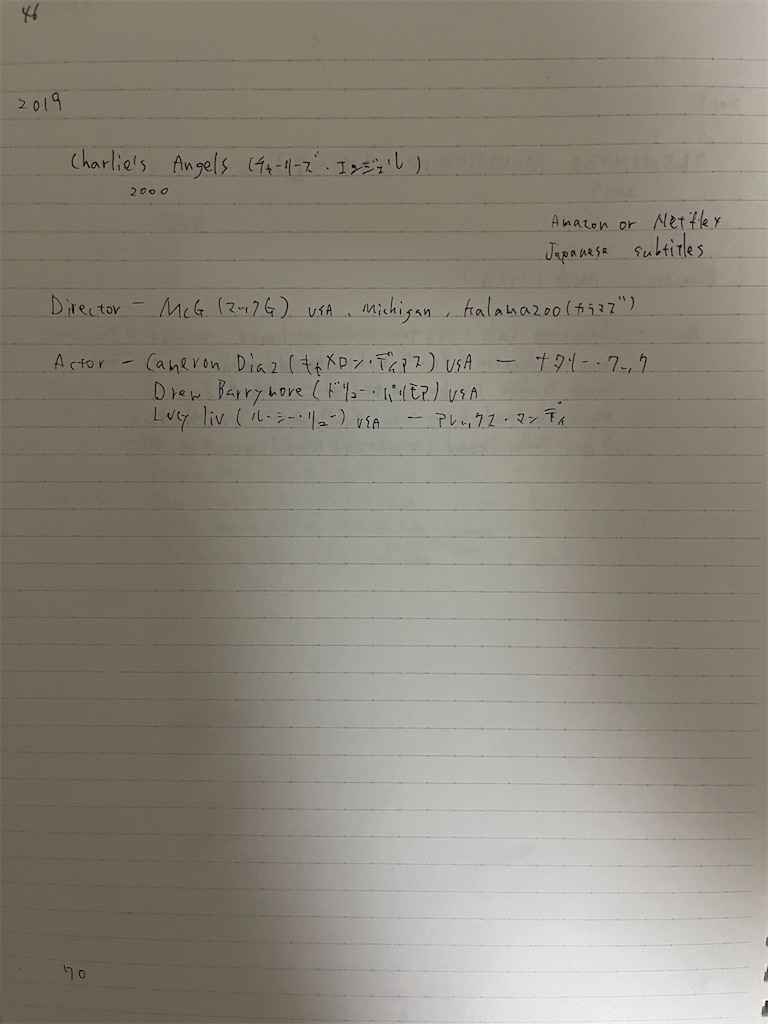 46
2019
Charlie's Angels (チャーリーズ・エンジェル)
2000
Amazon or Netflex
Japanese subtitles
Director - McG (マックG) USA、Michigan, Kalamazoo(カラマズ)
Actor - Cameron Diaz (キャメロン・ディアス) USA — ナタリー・クック
Drew Barrymore (ドリュー・バリモア) USA
Lucy liv (ルーシー・リュー) USA — アレックス・マンディ
70